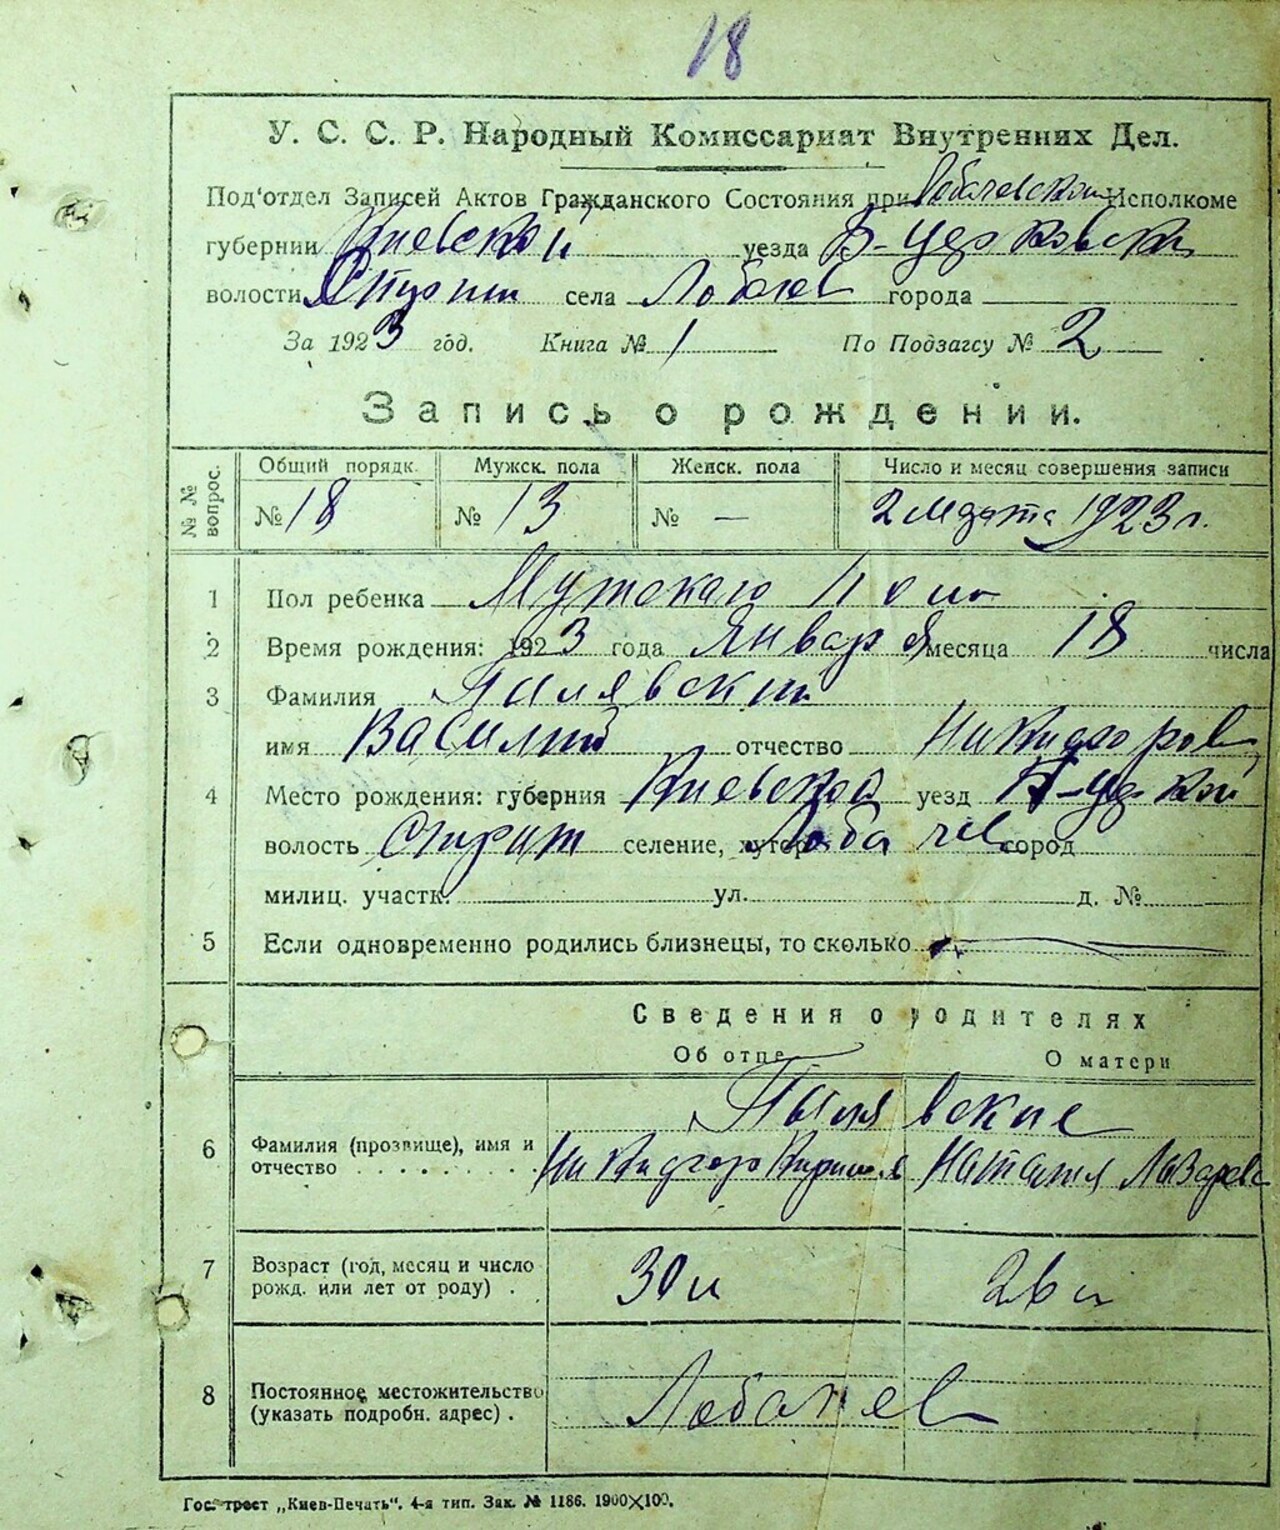 18
У. С. С. Р. Народный Комиссариат Внутренних Дел.
Под'отдел Записей Актов Гражданского Состояния при Лобачевском Исполкоме
губернии Киевской уезда Б-Церковски
волости села Лобачев города
За 1923 год. Книга № 1 По Подзагсу № 2
Запись о рождении.
№№ вопрос. Общий порядк. Мужск. пола Женск. пола Число и месяц совершения записи
№ 18 № 13 № — 2 марта 1923 г.
1 Пол ребенка Мужскаго пола
2 Время рождения: 1923 года Января месяца 18 числа
3 Фамилия Пилявский
имя Василий отчество Никифоров
4 Место рождения: губерния Киевской уезд Б-Цер-кой
волость селение, хутор Лобачев город
милиц. участк. ул. д. №
5 Если одновременно родились близнецы, то сколько —
Сведения о родителях
Об отце О матери
Пилявские
6 Фамилия (прозвище), имя и
отчество Никифор Кирилов Наталия Лазарев
7 Возраст (год, месяц и число
рожд. или лет от роду) . 30 л 26 л
8 Постоянное местожительство
(указать подробн. адрес) . Лобачев
Гос. трест „Киев-Печать". 4-я тип. Зак. № 1186. 1900×100.